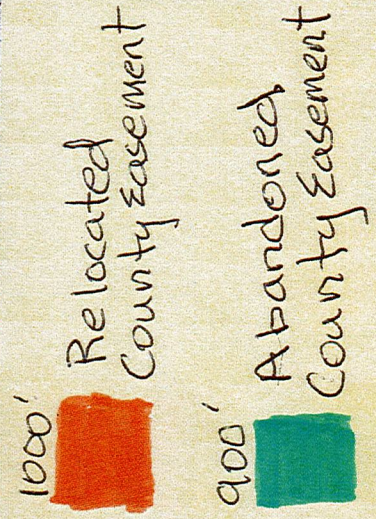 1000'
Relocated
County Easement
900'
Abandoned
County Easement